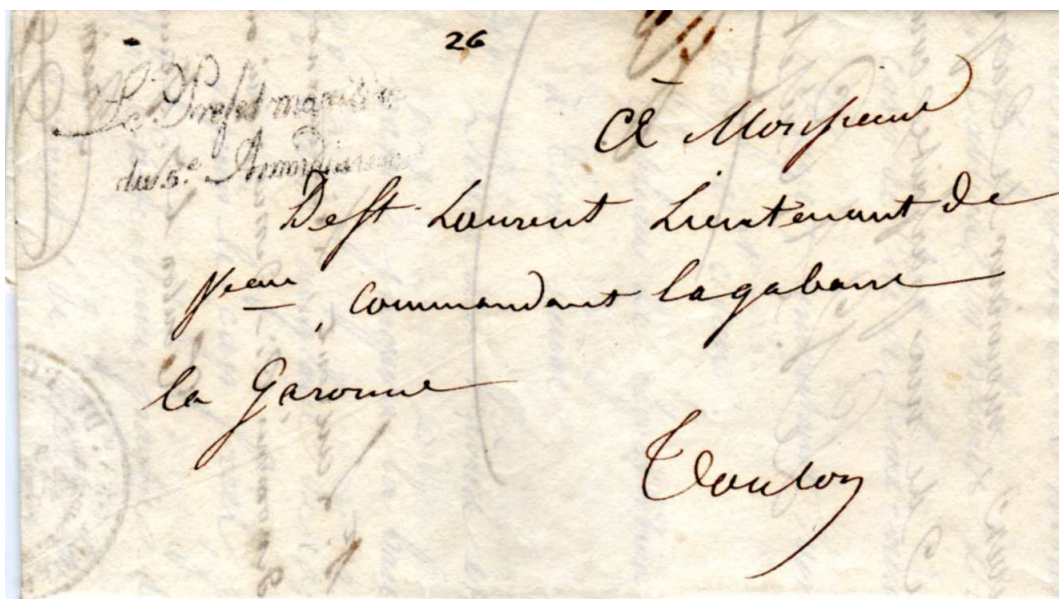 26
Le Préfet maritime
du 5.e Arrondissement
A Monsieur
De St Laurent Lieutenant de
Veau, commandant la gabare
la Garonne
Toulon